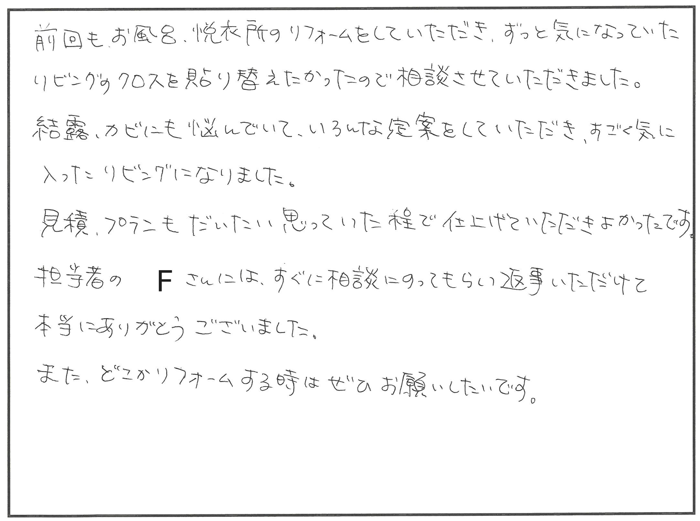 前回も、お風呂、悦衣所のリフォームをしていただき、ずっと気になっていた
リビングのクロスを貼り替えたかったので相談させていただきました。
結露、カビにも悩んでいて、いろんな定案をしていただき、すごく気に
入ったリビングになりました。
見積、プランもだいたい思っていた程で仕上げていただきよかったです。
担当者の Fさんには、すぐに相談にのってもらい返事いただけて
本当にありがとうございました。
また、どこかリフォームする時はぜひお願いしたいです。